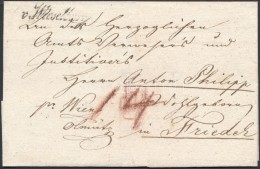 An den Herzoglichen
Amts Verwesers und
Justitiärs
Herrn Anton Philipp
pr Wien Wohlgeboren
Olmütz in Friedek